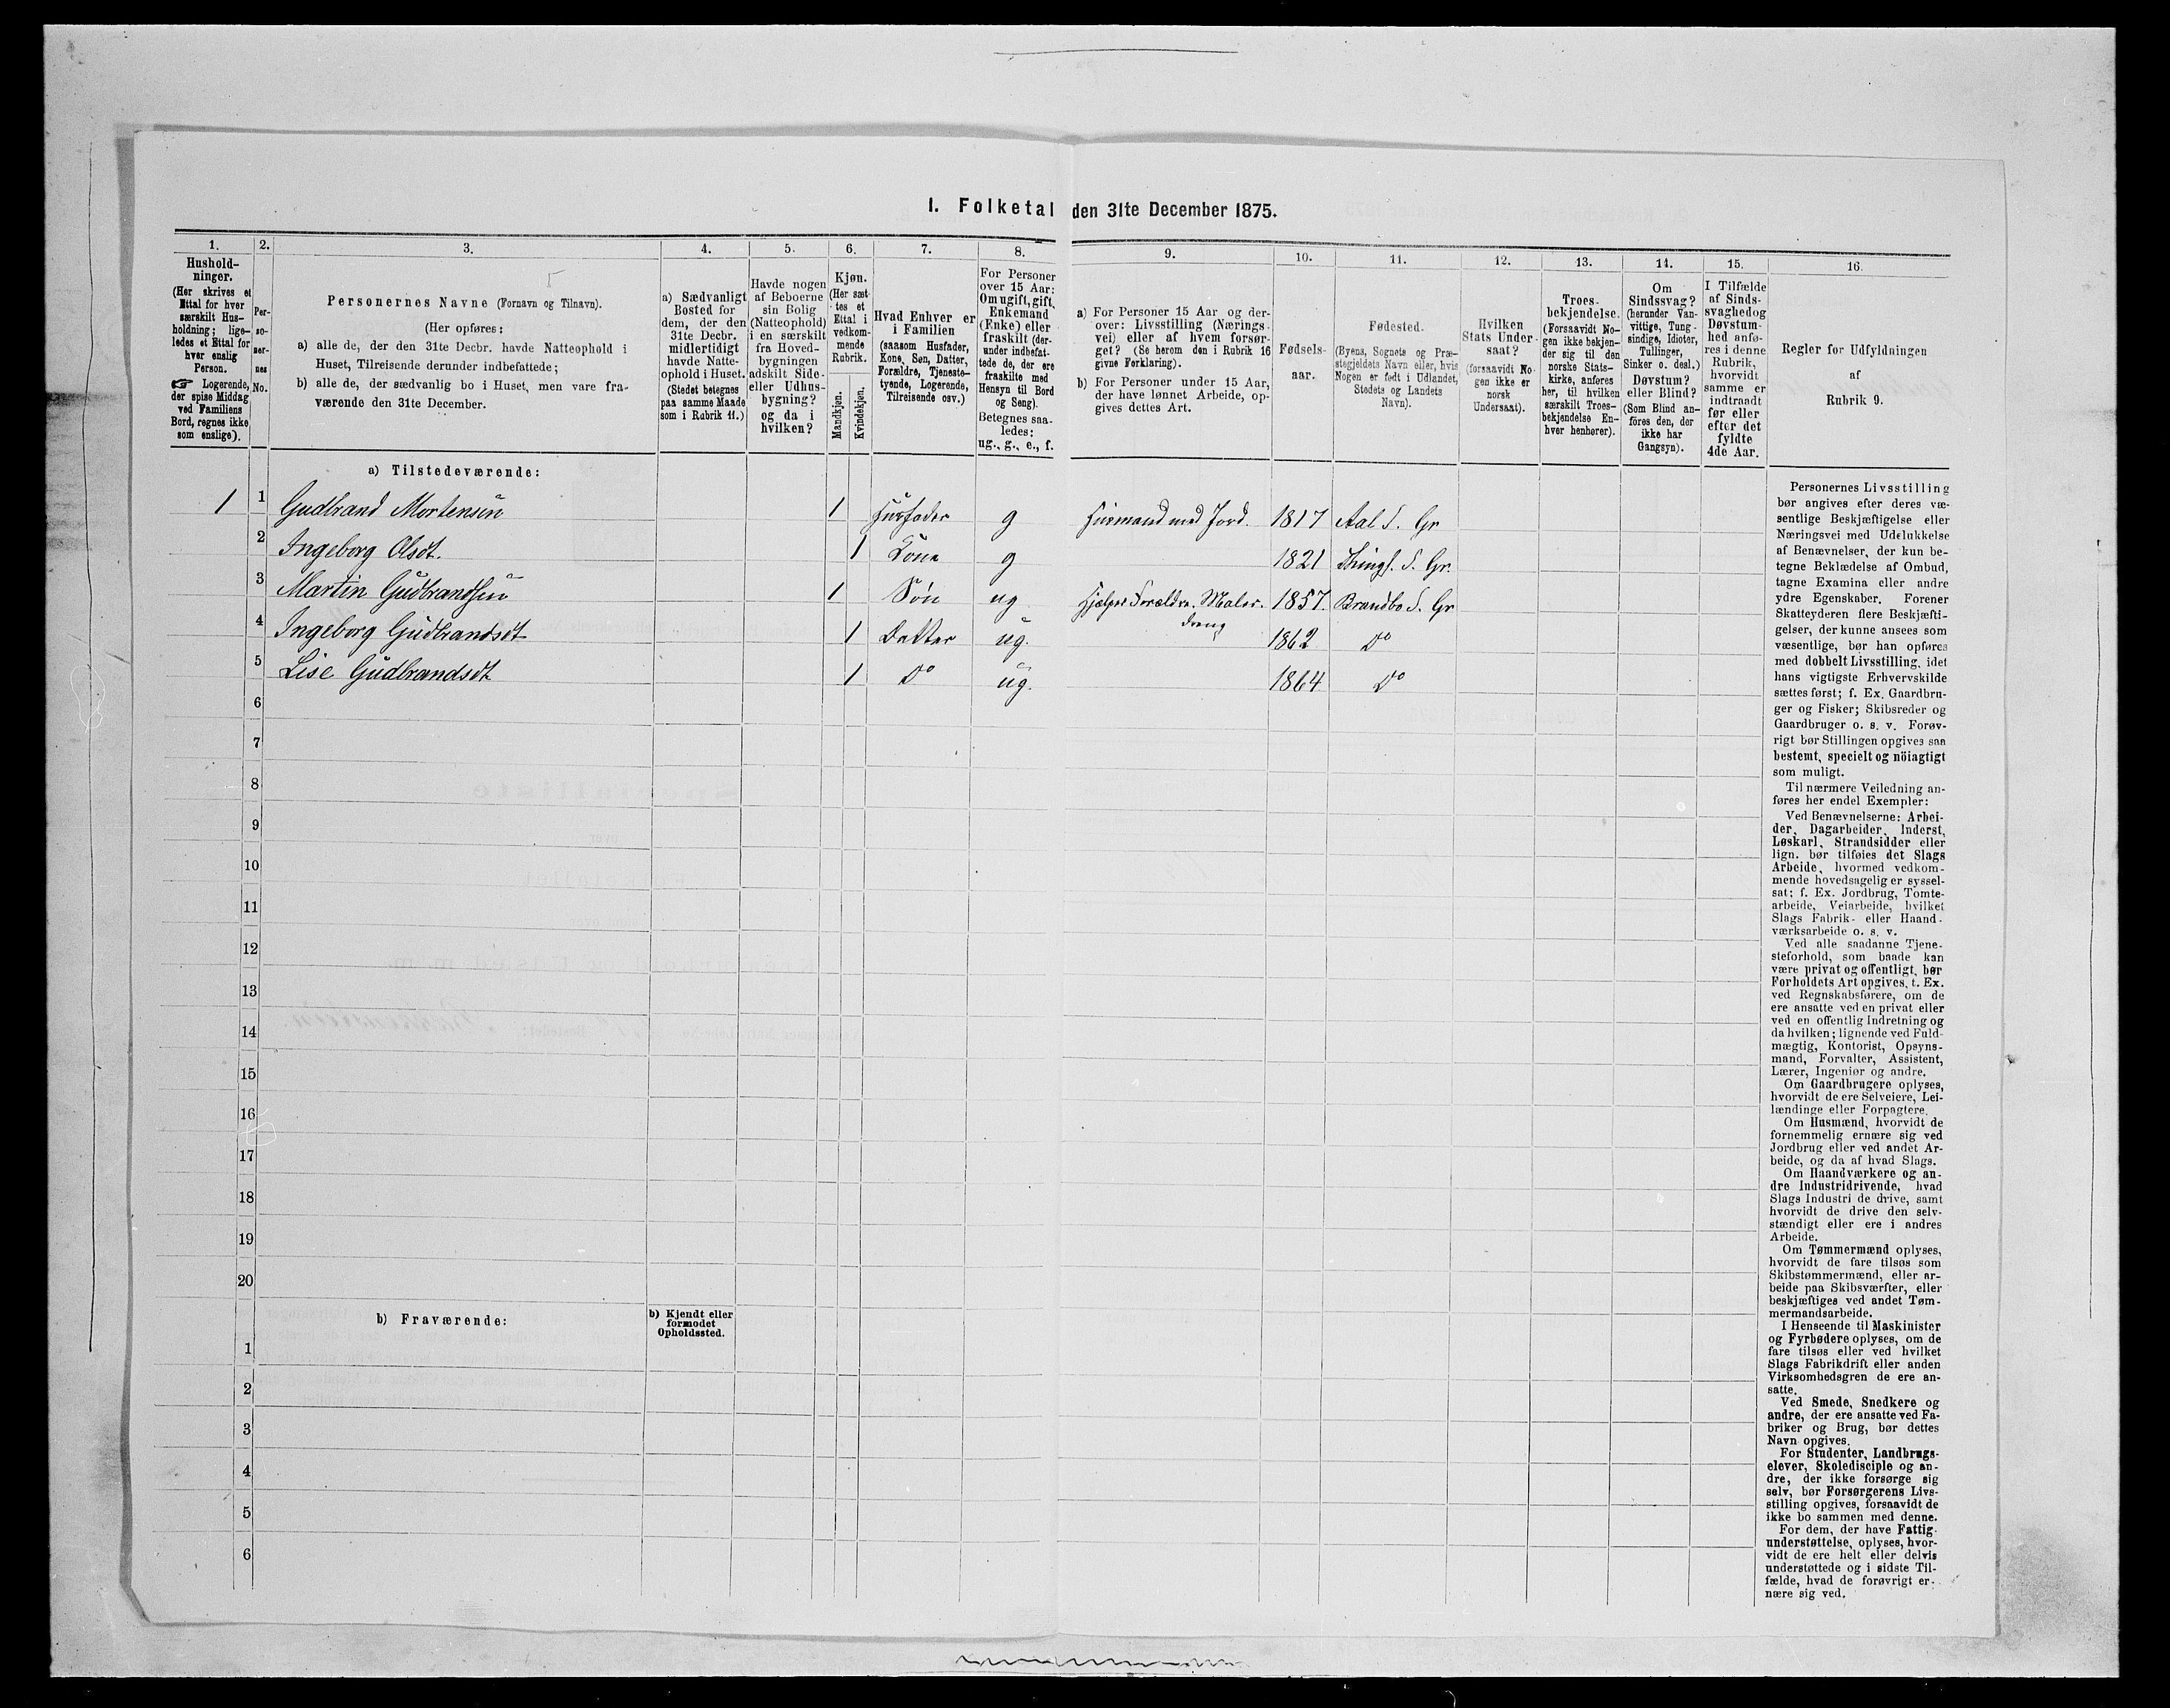 I. Folketal den 31te December 1875.
1. 2. 3. 4. 5. 6. 7. 8. 9. 10. 11. 12. 13. 14. 15. 16.
Hushold-
ninger.
(Her skrives et
Ettal for hver
særskilt Hus-
holdning; lige-
ledes et Ettal for
hver enslig
Person.
☞ Logerende,
der spise Middag
ved Familiens
Bord, regnes ikke
som enslige).
Per-
so-
ner-
nes
No.
Personernes Navne (Fornavn og Tilnavn).
(Her opføres:
a) alle de, der den 31te Decbr. havde Natteophold i
Huset, Tilreisende derunder indbefattede;
b) alle de, der sædvanlig bo i Huset, men vare fra-
værende den 31te December.
a) Sædvanligt
Bosted for
dem, der den
31te Decbr.
midlertidigt
havde Natte-
ophold i Huset.
(Stedet betegnes
paa samme Maade
som i Rubrik 11.)
Havde nogen
af Beboerne
sin Bolig
(Natteophold)
i en særskilt
fra Hoved-
bygningen
adskilt Side-
eller Udhus-
bygning?
og da i
hvilken?
Kjøn.
(Her sæt-
tes et
Ettal i
vedkom-
mende
Rubrik.
Mandkjøn.
Kvindekjøn.
Hvad Enhver er
i Familien
(saasom Husfader,
Kone, Søn, Datter,
Forældre, Tjeneste-
tyende, Logerende,
Tilreisende osv.)
For Personer
over 15 Aar:
Om ugift, gift,
Enkemand
(Enke) eller
fraskilt (der-
under indbefat-
tede de, der ere
fraskilte med
Hensyn til Bord
og Seng).
Betegnes saa-
ledes:
ug., g., e., f.
a) For Personer 15 Aar og der-
over: Livsstilling (Nærings-
vei) eller af hvem forsør-
get? (Se herom den i Rubrik 16
givne Forklaring).
b) For Personer under 15 Aar,
der have lønnet Arbeide, op-
gives dettes Art.
Fødsels-
aar.
Fødested.
(Byens, Sognets og Præ-
stegjeldets Navn eller, hvis
Nogen er født i Udlandet,
Stedets og Landets
Navn).
Hvilken
Stats Under-
saat?
(forsaavidt No-
gen ikke er
norsk
Undersaat).
Troes-
bekjendelse.
(Forsaavidt No-
gen ikke bekjen-
der sig til den
norske Stats-
kirke, anføres
her, til hvilken
særskilt Troes-
bekjendelse En-
hver henhører).
Om
Sindssvag?
(herunder Van-
vittige, Tung-
sindige, Idioter,
Tullinger,
Sinker o. desl.)
Døvstum?
eller Blind?
(Som Blind an-
föres den, der
ikke har
Gangsyn).
I Tilfælde
af Sinds-
svaghed og
Døvstum-
hed anfø-
res i denne
Rubrik,
hvorvidt
samme er
indtraadt
før eller
efter det
fyldte
4de Aar.
Regler for Udfyldningen
af
Rubrik 9.
a) Tilstedeværende:
1 1 Gudbrand Mortensen 1 Husfader g Husmand med Jord. 1817 Aal S. Gr
2 Ingeborg Olsdt. 1 Kone g 1821 Thingl. S. Gr.
3 Martin Gudbrandsen 1 Søn ug Hjelper Forældre. Maler- 1857. Brandbo S. Gr
dreng
4 Ingeborg Gudbrandsdt 1 Datter ug. 1862 Do
5 Lise Gudbrandsdt 1 Do ug. 1864 Do
6
7
8
9
10
11
12
13
14
15
16
17
18
19
20
b) Fraværende:
b) Kjendt eller
formodet
Opholdssted.
1
2
3
4
5
6
Personernes Livsstilling
bør angives efter deres væ-
sentlige Beskjæftigelse eller
Næringsvei med Udelukkelse
af Benævnelser, der kun be-
tegne Beklædelse af Ombud,
tagne Examina eller andre
ydre Egenskaber. Forener
Skatteyderen flere Beskjæfti-
gelser, der kunne ansees som
væsentlige, bør han opføres
med dobbelt Livsstilling, idet
hans vigtigste Erhvervskilde
sættes først; f. Ex. Gaardbru-
ger og Fisker; Skibsreder og
Gaardbruger o. s. v. Forøv-
rigt bør Stillingen opgives saa
bestemt, specielt og nöiagtigt
som muligt.
Til nærmere Veiledning an-
føres her endel Exempler:
Ved Benævnelserne: Arbei-
der, Dagarbeider, Inderst,
Løskarl, Strandsidder eller
lign. bør tilføies det Slags
Arbeide, hvormed vedkom-
mende hovedsagelig er syssel-
sat; f. Ex. Jordbrug, Tomte-
arbeide, Veiarbeide, hvilket
Slags Fabrik- eller Haand-
værksarbeide o. s. v.
Ved alle saadanne Tjene-
steforhold, som baade kan
være privat og offentligt, bør
Forholdets Art opgives, t. Ex.
ved Regnskabsførere, om de
ere ansatte ved en privat eller
ved en offentlig Indretning og
da hvilken; lignende ved Fuld-
mægtig, Kontorist, Opsyns-
mand, Forvalter, Assistent,
Lærer, Ingeniør og andre.
Om Gaardbrugere oplyses,
hvorvidt de ere Selveiere, Lei-
lændinge eller Forpagtere.
Om Husmænd, hvorvidt de
fornemmelig ernære sig ved
Jordbrug eller ved andet Ar-
beide, og da af hvad Slags.
Om Haandværkere og an-
dre Industridrivende, hvad
Slags Industri de drive, samt
hvorvidt de drive den selv-
stændigt eller ere i andres
Arbeide.
Om Tømmermænd oplyses,
hvorvidt de fare tilsøs som
Skibstømmermænd, eller ar-
beide paa Skibsværfter, eller
beskjæftiges ved andet Tøm-
mermandsarbeide.
I Henseende til Maskinister
og Fyrbødere oplyses, om de
fare tilsøs eller ved hvilket
Slags Fabrikdrift eller anden
Virksomhedsgren de ere an-
satte.
Ved Smede, Snedkere og
andre, der ere ansatte ved Fa-
briker og Brug, bør dettes
Navn opgives.
For Studenter, Landbrugs-
elever, Skoledisciple og an-
dre, der ikke forsørge sig
selv, bør Forsørgerens Livs-
stilling opgives, forsaavidt de
ikke bo sammen med denne.
For dem, der have Fattig-
understøttelse, oplyses, hvor-
vidt de ere helt eller delvis
understøttede og i sidste Til-
fælde, hvad de forøvrigt er-
nære sig ved.